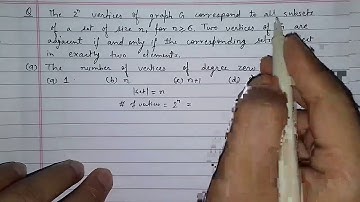 Q The 2ⁿ vertices of graph G correspond to all subsets
of a set of size n, for n ≥ 6. Two vertices of G are
adjacent if and only if the corresponding
in exactly two elements.
(a) The number of vertices of degree zero
(a) 1 (b) n (c) n+1 (d)
|set| = n
# vertices = 2ⁿ =